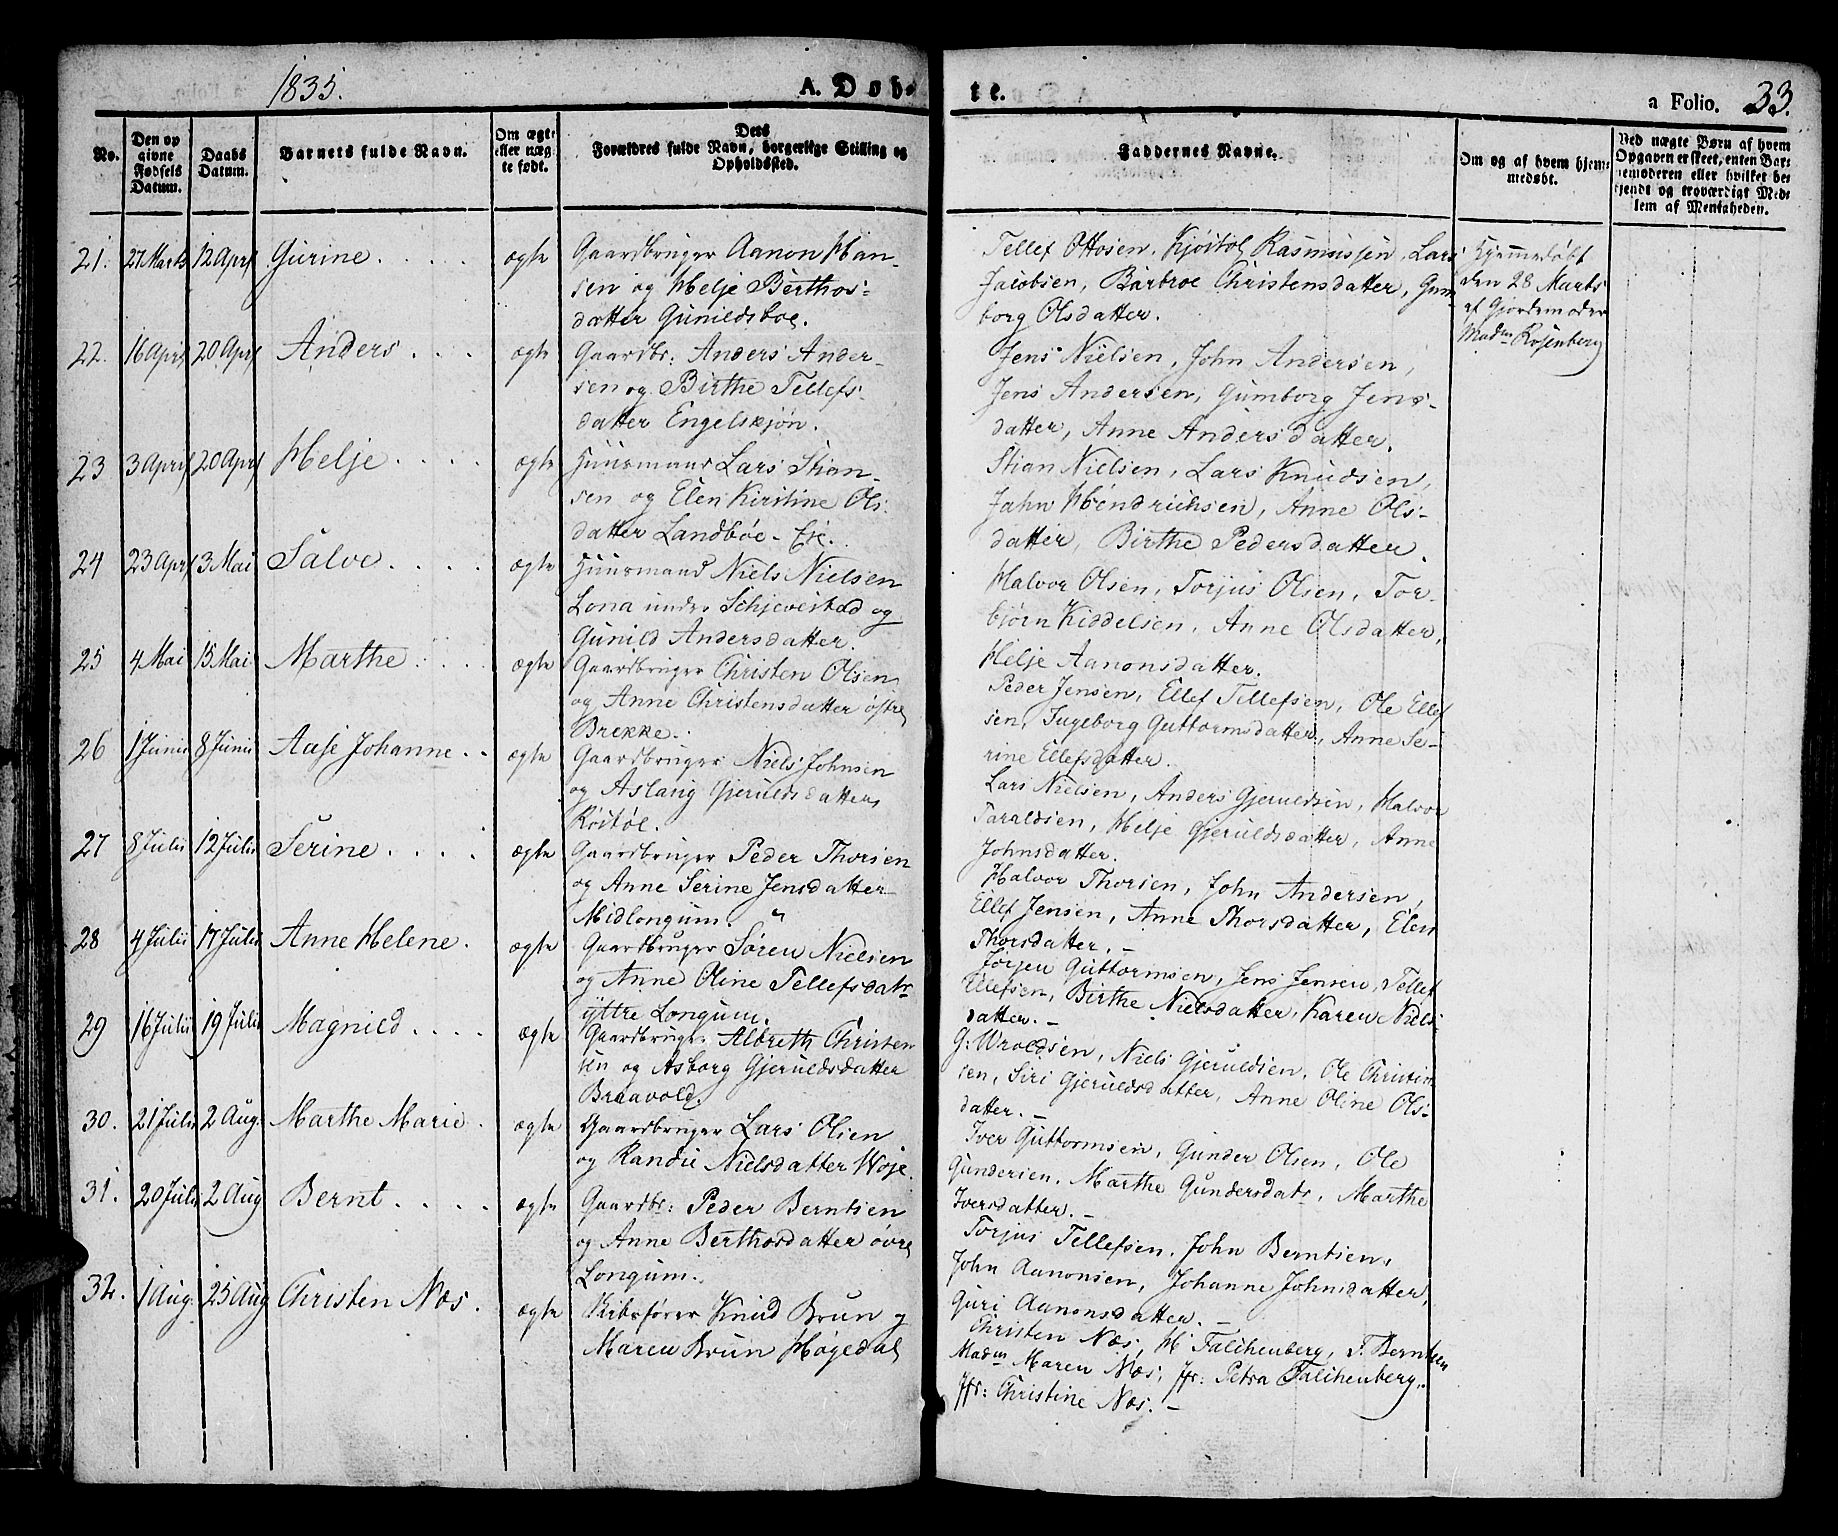 1835.
A. Døb-
te.
a Folio. 33.
No.
Den op
givne
Fødsels
Datum.
Daabs
Datum.
Barnets fulde Navn.
Om ægte
eller uæg
te født.
Dets
Forældres fulde Navn, borgerlige Stilling og
Opholdssted.
Faddernes Navne.
Om og af hvem hjem-
medøbt.
Ved uægte Børn af hvem
Opgaven er skeet, enten Bar-
nemoderen eller hvilket be
kjendt og troværdigt Med-
lem af Menigheden.
21. 27 Marts 12 April Gurine . . . . ægte Gaardbruger Aanon Han-
sen og Helje Berthos-
datter Gunildsboe.
Tellef Ottosen, Kjøstol Rasmussen, Lars
Jacobsen, Barbroe Christensdatter, Gum
borg Olsdatter.
Hjemmedøbt
den 28 Marts
af Gjordemoder
Madm Rosenberg
22. 16 April 20 April Anders . . . ægte Gaardbr: Anders Ander-
sen og Birthe Tellefs-
datter Engelskjøn.
Jens Nielsen, John Andersen,
Jens Andersen, Gumborg Jens-
datter, Anne Andersdatter.
23 3 April 20 April Helje . . . . ægte Huusmand Lars Stian-
sen og Elen Kirstine Ols-
datter Landbøe-Eje.
Stian Nielsen, Lars Knudsen,
Jahn Hendrichsen, Anne Ols-
datter, Birthe Pedersdatter.
24 23 April 3 Mai Salve . . . . ægte Huusmand Niels Nielsen
Lona under Schjevestad og
Gunild Andersdatter.
Halvor Olsen, Torjus Olsen, Tor-
bjørn Kiddelsen, Anne Olsdatter,
Helje Aanonsdatter.
25 4 Mai 15 Mai Marthe . . . . ægte Gaardbruger Christen Olsen
og Anne Christensdatter østre
Brekke.
Peder Jensen, Ellef Tellefsen, Ole Ellef
sen, Ingeborg Guttormsdatter, Anne Se-
rine Ellefsdatter.
26 1 Junii 8 Junii Aase Johanne . . ægte Gaardbruger Niels Johnsen
og Aslaug Gjeruldsdatter
Røstøl.
Lars Nielsen, Anders Gjeruldsen, Halvor
Taraldsen, Helje Gjeruldsdatter, Anne
Johnsdatter.
27 8 Julii 12 Julii Serine . . . . ægte Gaardbruger Peder Thorsen
og Anne Serine Jensdatter
Midlongum.
Halvor Thorsen, John Andersen,
Ellef Jensen, Anne Thorsdatter, Elen
Thorsdatter. -
28 4 Julii 17 Julii Anne Helene . ægte Gaardbruger Søren Nielsen
og Anne Oline Tellefsdatr
yttre Longum.
Jørgen Guttormsen, Jens Jensen, Tellef
Ellefsen, Birthe Nielsdatter, Karen Niels
datter. -
29 16 Julii 19 Julii Magnild . . . . ægte Gaardbruger Albreth Christen
sen og Asborg Gjeruldsdatter
Braavold.
G: Wroldsen, Niels Gjeruldsen, Ole Christen
sen, Siri Gjeruldsdatter, Anne Oline Ols-
datter. -
30. 21 Julii 2 Aug. Marthe Marie . ægte Gaardbruger Lars Olsen
og Randie Nielsdatter Woje.
Iver Guttormsen, Gunder Olsen, Ole
Gundersen, Marthe Gundersdatr, Marthe
Iversdatter. -
31. 20 Julii 2 Aug Bernt . . . . ægte Gaardbr: Peder Berntsen
og Anne Berthosdatter øvre
Longum.
Torjus Tellefsen, John Berntsen,
John Aanonsen, Johanne Johnsdatter,
Guri Aanonsdatter. -
32. 1 Aug. 25 Aug Christen Næs . ægte Skibsfører Knud Brun og
Maren Brun Høgedal
Christen Næs, H Falchenberg, T. Berntsen
Madm Maren Næs, Jfr: Petra Falchenberg,
Jfr: Christine Næs. -